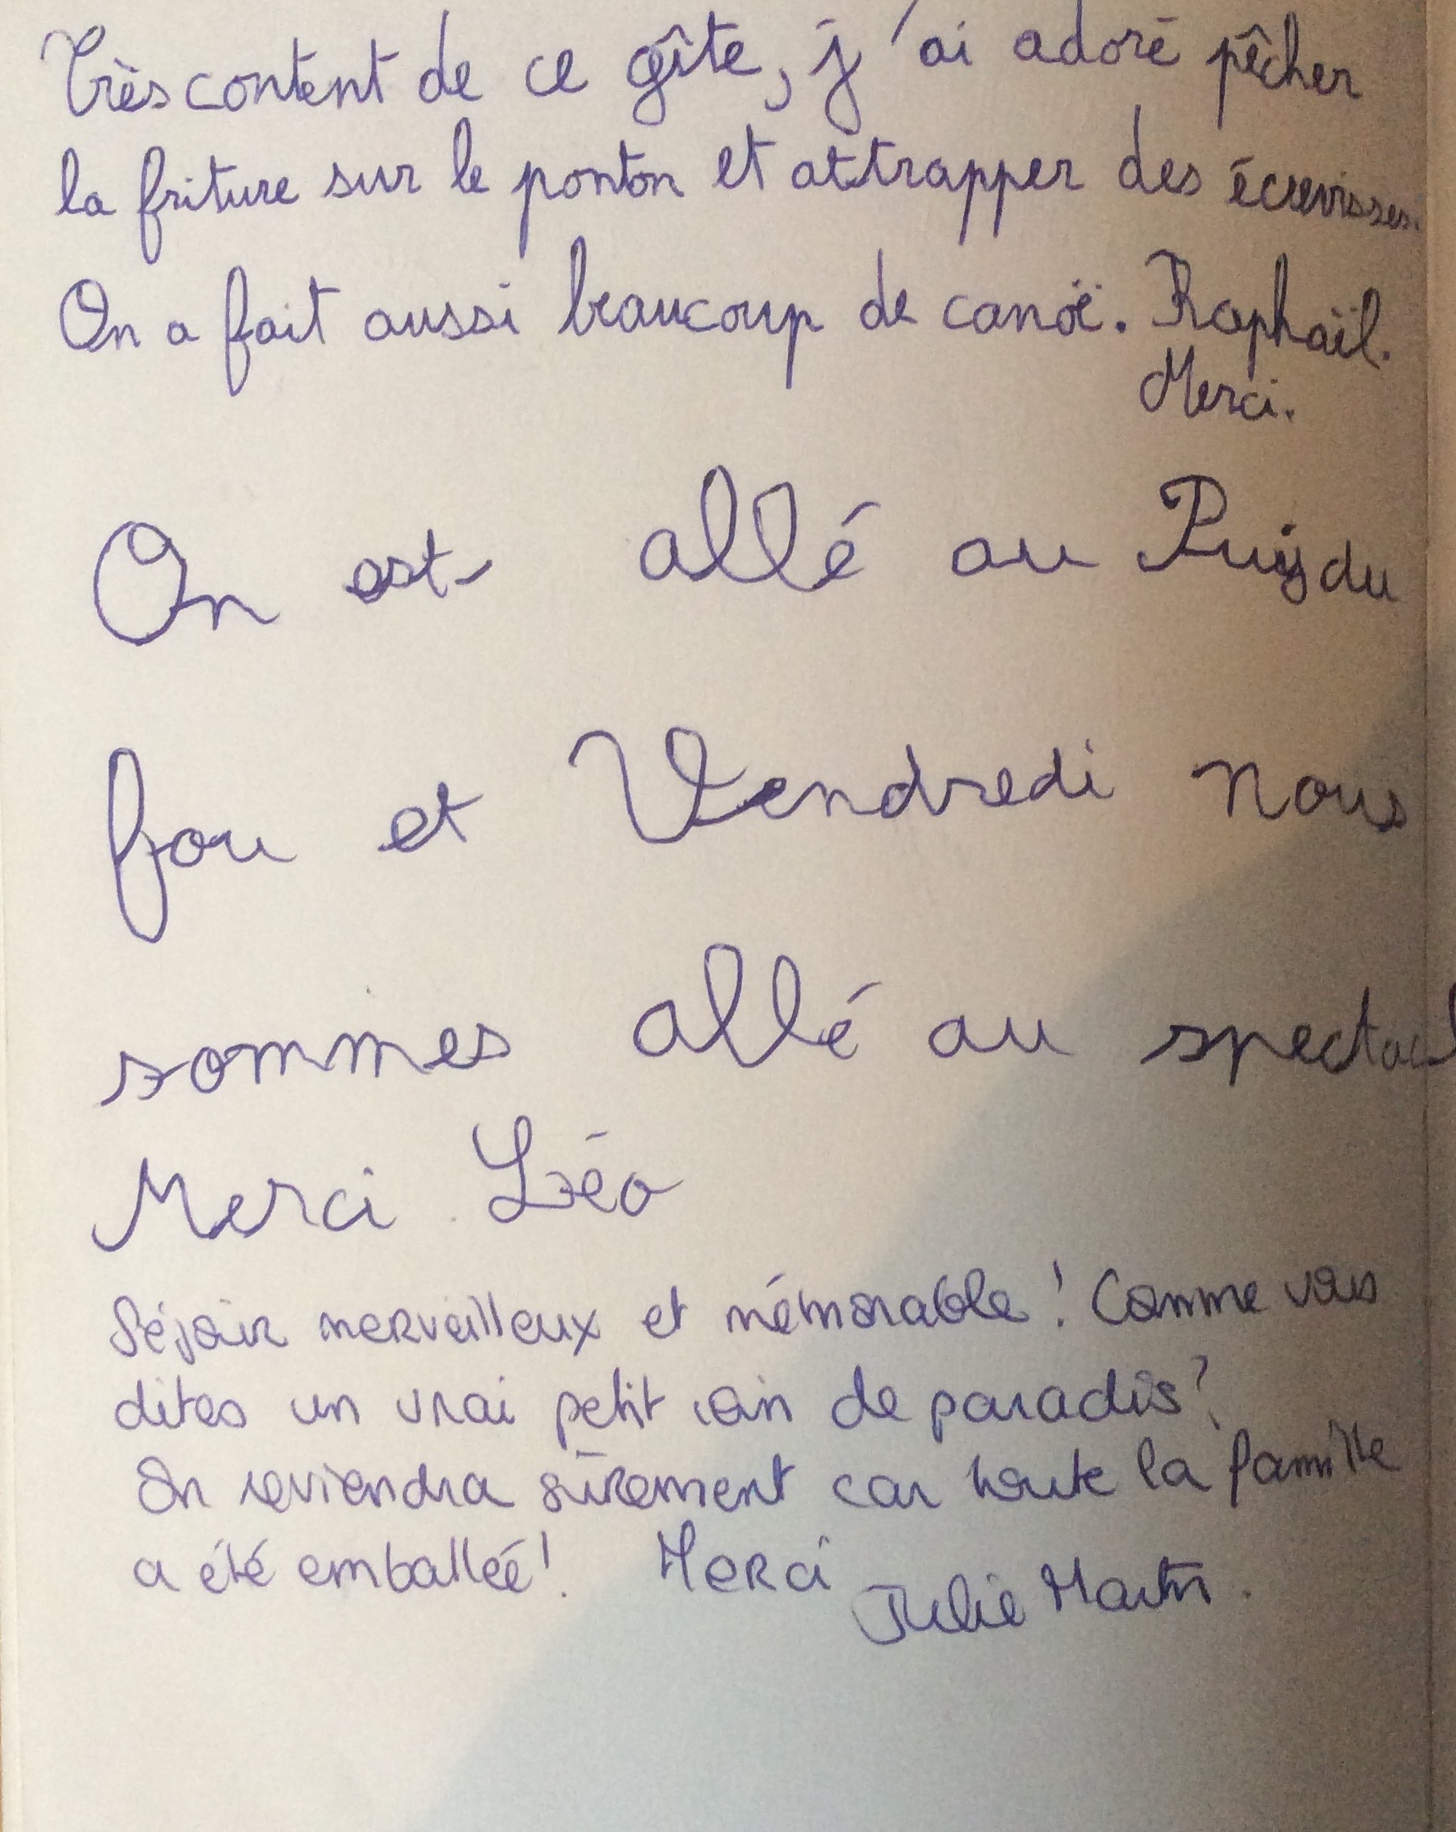 Très content de ce gîte, j'ai adoré pêcher
la friture sur le ponton et attrapper des écrevisses.
On a fait aussi beaucoup de canoë. Raphaël.
Merci.
On est allé au Puy du
fou et Vendredi nous
sommes allé au spectacl
Merci Léo
Séjour merveilleux et mémorable ! Comme vous
dites un vrai petit coin de paradis !
On reviendra sûrement car toute la famille
a été emballée ! Merci
Julie Martin.